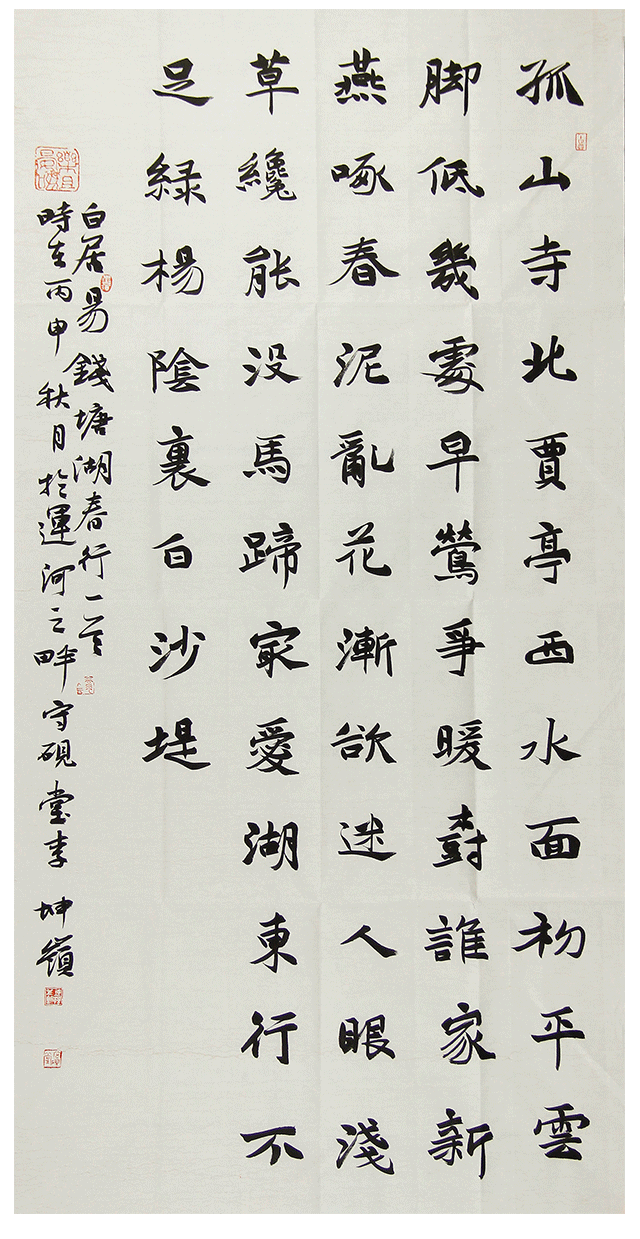 孤山寺北賈亭西水面初平雲
脚低幾處早鶯爭暖樹誰家新
燕啄春泥亂花漸欲迷人眼淺
草纔能没馬蹄㝡愛湖東行不
足緑楊陰裏白沙堤
白居易錢塘湖春行一首
時在丙申秋月於運河之畔守硯堂李坤嶺